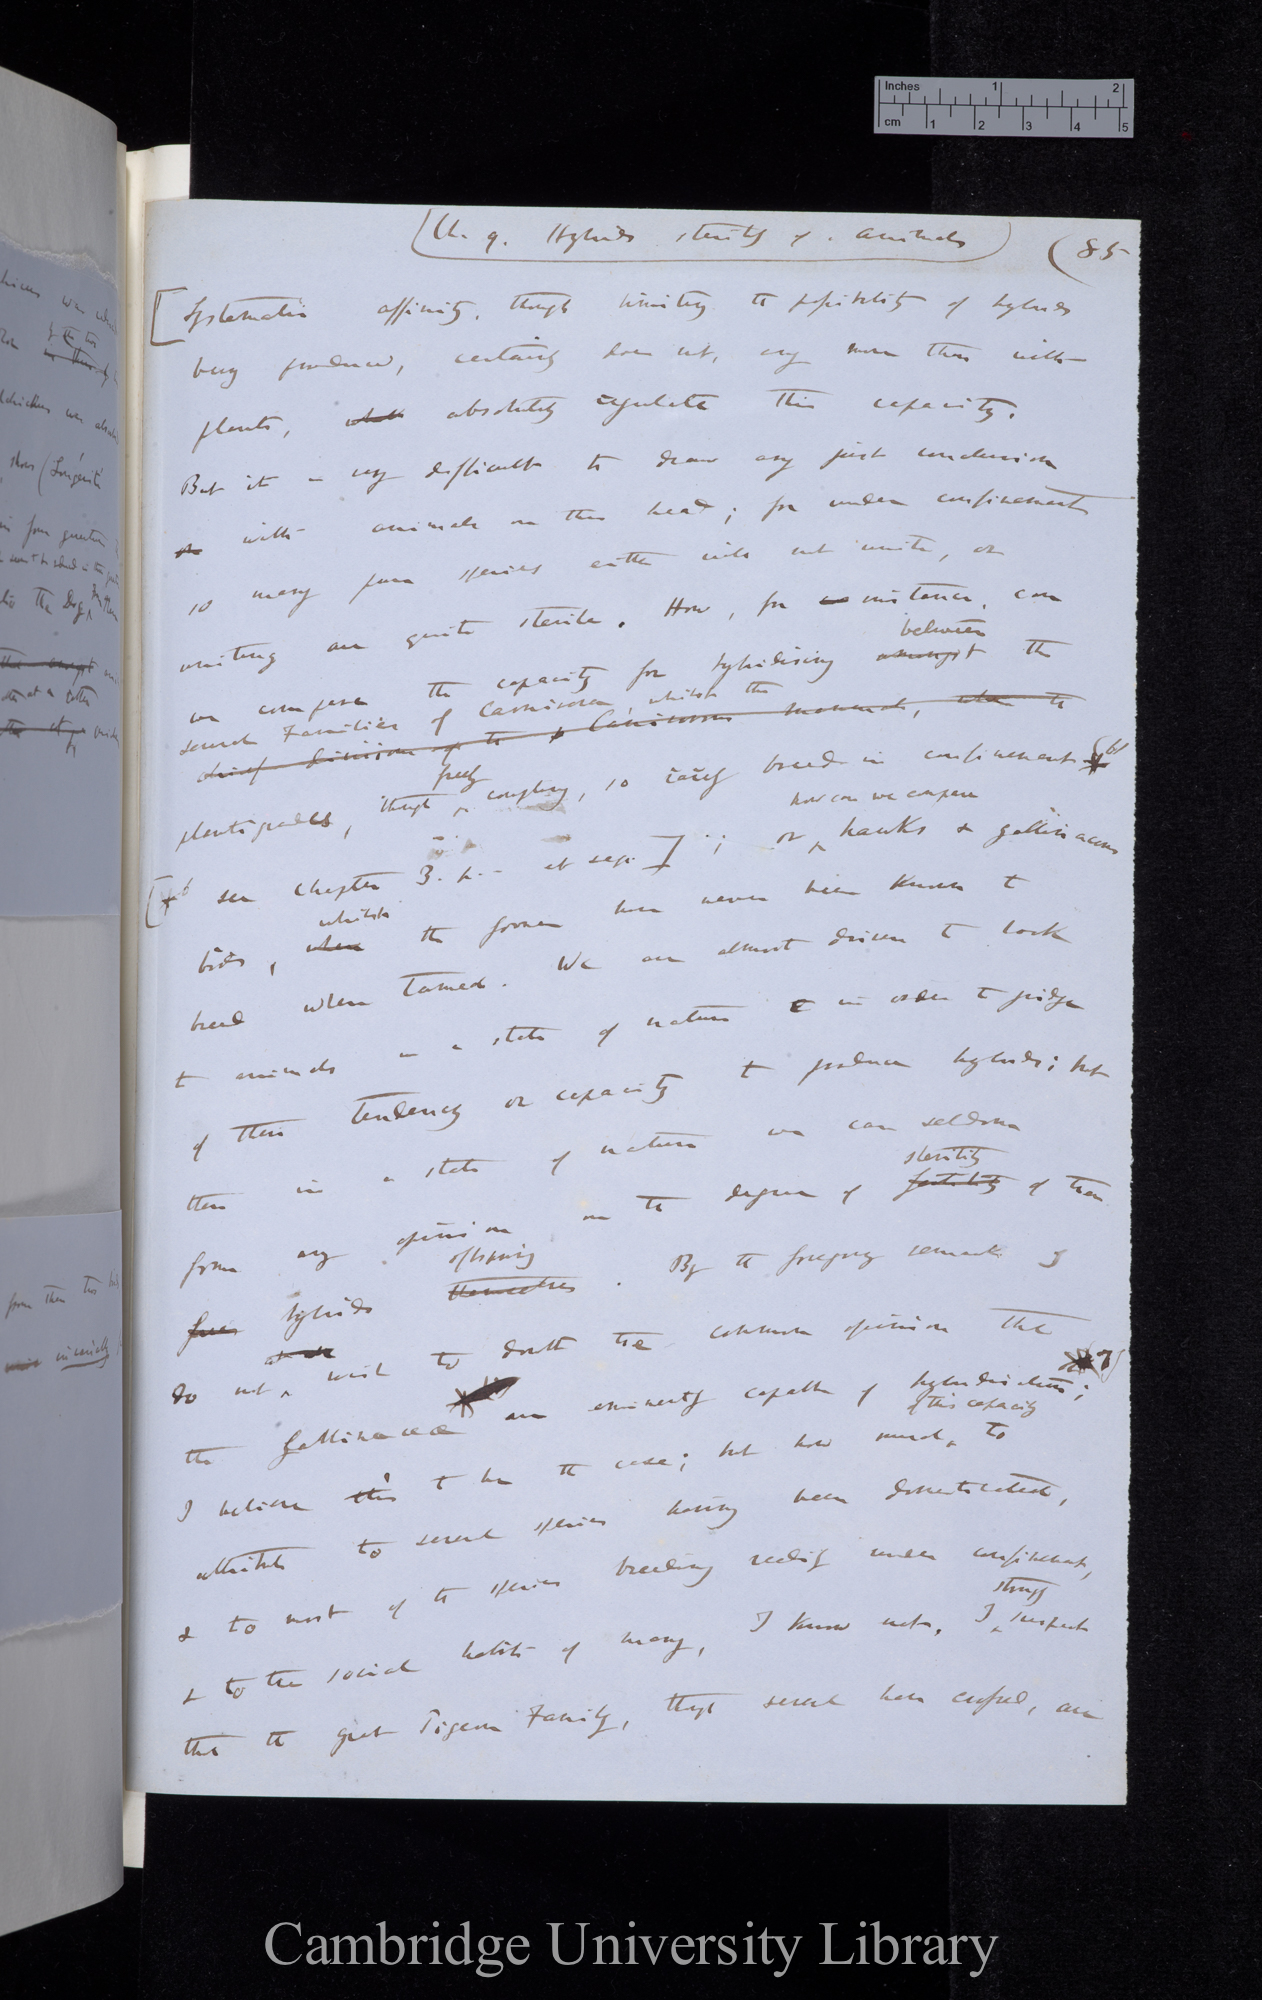 Inches 1 2
cm 1 2 3 4 5
Ch. 9. Hybrids sterility of. animals
(85
[Systematic affinity, though limiting the possibility of hybrids
being produced, certainly does not, any more than with
plants, absolutely regulate this capacity.
But it is very difficult to draw any just conclusion
or with animals on this head; for under confinement
so many pure species either will not unite, or
uniting are quite sterile. How, for instance, can
between
we compare the capacity for hybridising amongst the
several Families of Carnivora, whilst the
chief divisions of the Carnivorous mammals, when the
freely
plantigrades, though coupling, so rarely breed in confinement
how can we compare
[ see Chapter 3. p.- et seq.]; or hawks & gallinaceous
whilst
birds, when the former have never been known to
breed when tamed. We are almost driven to look
to animals in a state of nature in order to judge
of their tendency or capacity to produce hybrids; but
then in a state of nature we can seldom
sterility
form any opinion on the degree of fertility of their
offspring
hybrids themselves. By the foregoing remarks I
do not wish to doubt the common opinion that
the Gallinaceæ are eminently capable of hybridisation;
of this capacity
I believe this to be the case; but how much to
attribute to several species having been domesticated,
& to most of the species breeding readily under confinement,
strongly
& to the social habits of many, I know not. I suspect
that the great Pigeon Family, though several have crossed, are
Cambridge University Library